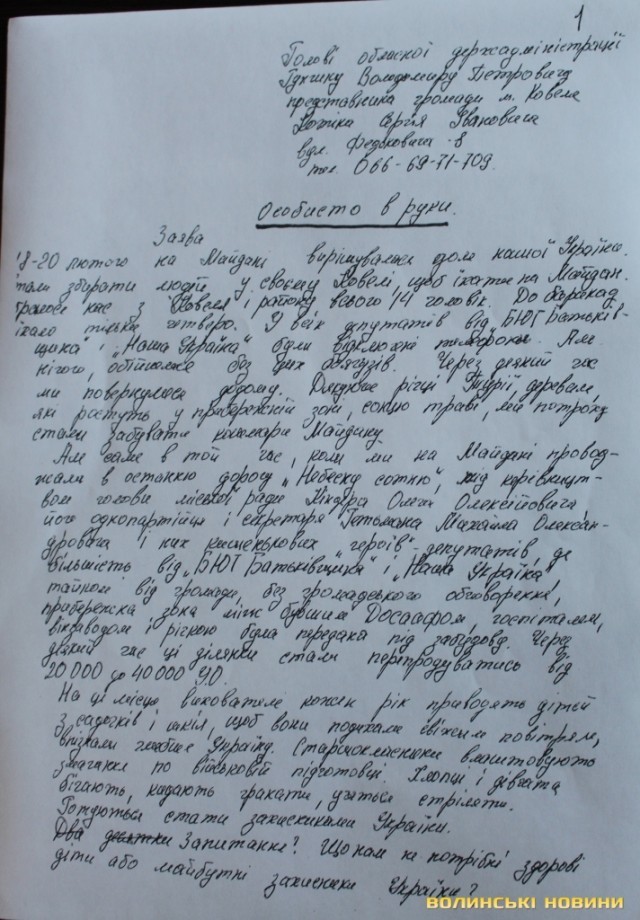 1
Голові обласної держадміністрації
Гунчику Володимиру Петровичу
представника громади м. Ковеля
Котіка Сергія Івановича
вул. Федьковича - 8
тел. 066-69-71-709.
Особисто в руки.
Заява
18-20 лютого на Майдані вирішувалася доля нашої України.
стали збирати людей у своєму Ковелі, щоб їхати на Майдан.
нас з Ковеля і району всього 14 чоловік. До барикад
їхало тільки четверо. У всіх депутатів від „БЮТ Батьків-
щина" і „Наша Україна" були відключені телефони. Але
нічого, обійшлося без цих боягузів. Через деякий час
ми повернулися додому. Дякуючи річці Турії, деревам,
які ростуть у прибережній зоні, сонцю траві, ми потроху
стали забувати кошмари Майдану.
Але саме в той час, коли ми на Майдані провод-
жали в останню дорогу „Небесну сотню", під керівницт-
вом голови міської ради Кіндера Олега Олексійовича,
його однопартійця і секретаря Гетьмана Михайла Олексан-
дровича і них кишенькових „героїв"-депутатів, де
більшість від „БЮТ Батьківщина" і „Наша Україна"
тайком від громади, без громадського обговорення,
прибережна зона між бувшим Досаафом, госпіталем,
і річкою була передана під забудову. Через
деякий час ці ділянки стали перепродуватись від
20 000 до 40 000 У.О.
На ці місця вихователе кожен рік приводять дітей
з садочків і шкіл, щоб вони подихали свіжим повітрям,
взнали глибше Україну. Старшокласники влаштовують
змагання по військовій підготовці. Хлопці і дівчата
бігають, кидають гранати, учаться стріляти.
Готуються стати захисниками України.
Два Запитання? Що нам не потрібні здорові
діти або майбутні захисники України?
ВОЛИНСЬКІ НОВИНИ